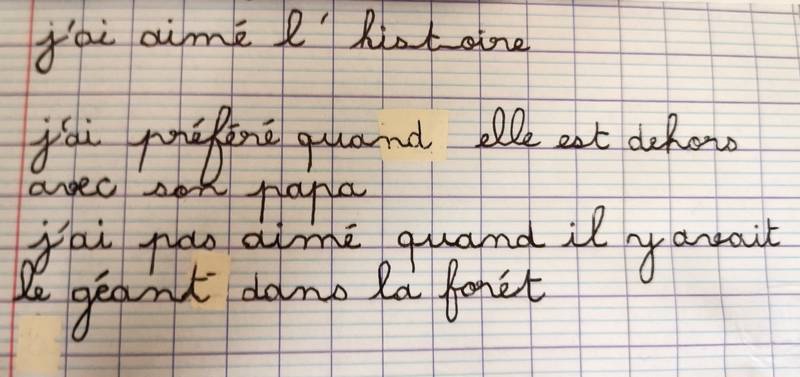 j'ai aimé l' histoire
j'ai préféré quand elle est dehors
avec son papa
j'ai pas aimé quand il y avait
le géant dans la forét